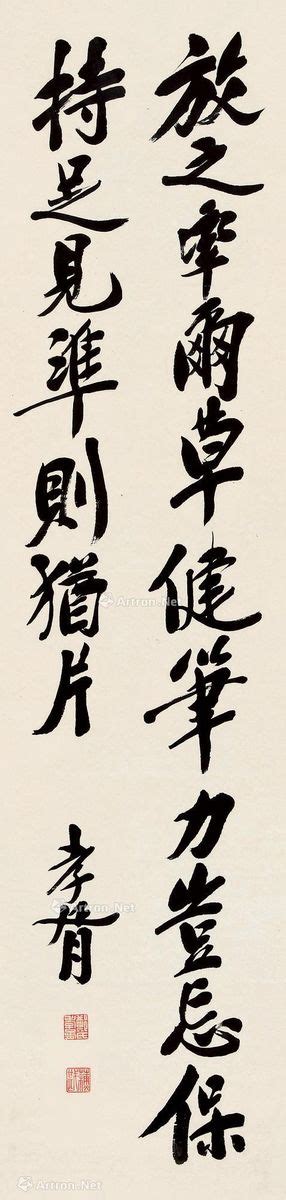 放之率爾草健筆力豈忘保
持足見準則猶片
孝胥
Artron.Net
Artron.Net
Artron.Net